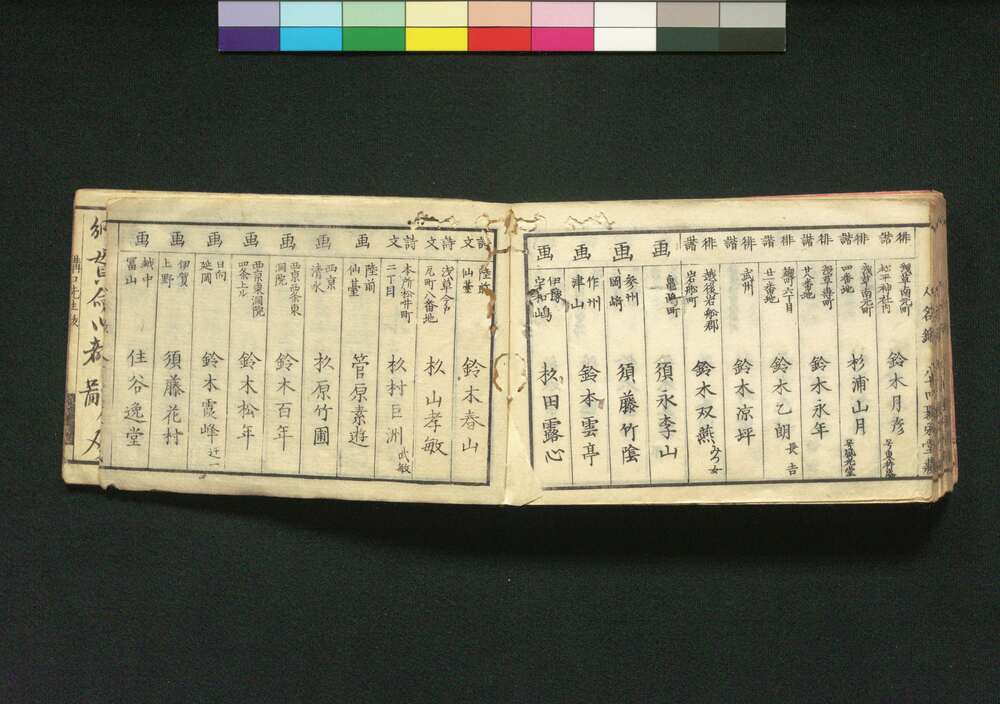 俳諧 浅草南元町 松平神社内 鈴木月彦
俳諧 浅草南元町 四番地 杉浦山月
俳諧 廿八番地 鈴木永年
俳諧 麹町六丁目 廿一番地 鈴木乙朗 長吉
俳諧 武州 鈴木凉坪
俳諧 越後岩船郡 岩船町 鈴木双燕
画 亀嶋町 須永李山
画 參州 岡﨑 須藤竹陰
画 作州 津山 鈴木雲亭
画 伊豫 宇和嶋 杦田露心
詩文 仙臺 鈴木春山
詩文 浅草今戸 瓦町八番地 杦山孝敏
詩文 本所松井町 二丁目 杦村巨洲 武敏
画 陸前 仙臺 管原素遊
画 西京 清水 杦原竹圃
画 西京西四条東 洞院 鈴木百年
画 西京東洞院 四条上ル 鈴木松年
画 日向 延岡 鈴木霞峰 近一
画 伊賀 上野 須藤花村
画 越中 冨山 住谷逸堂